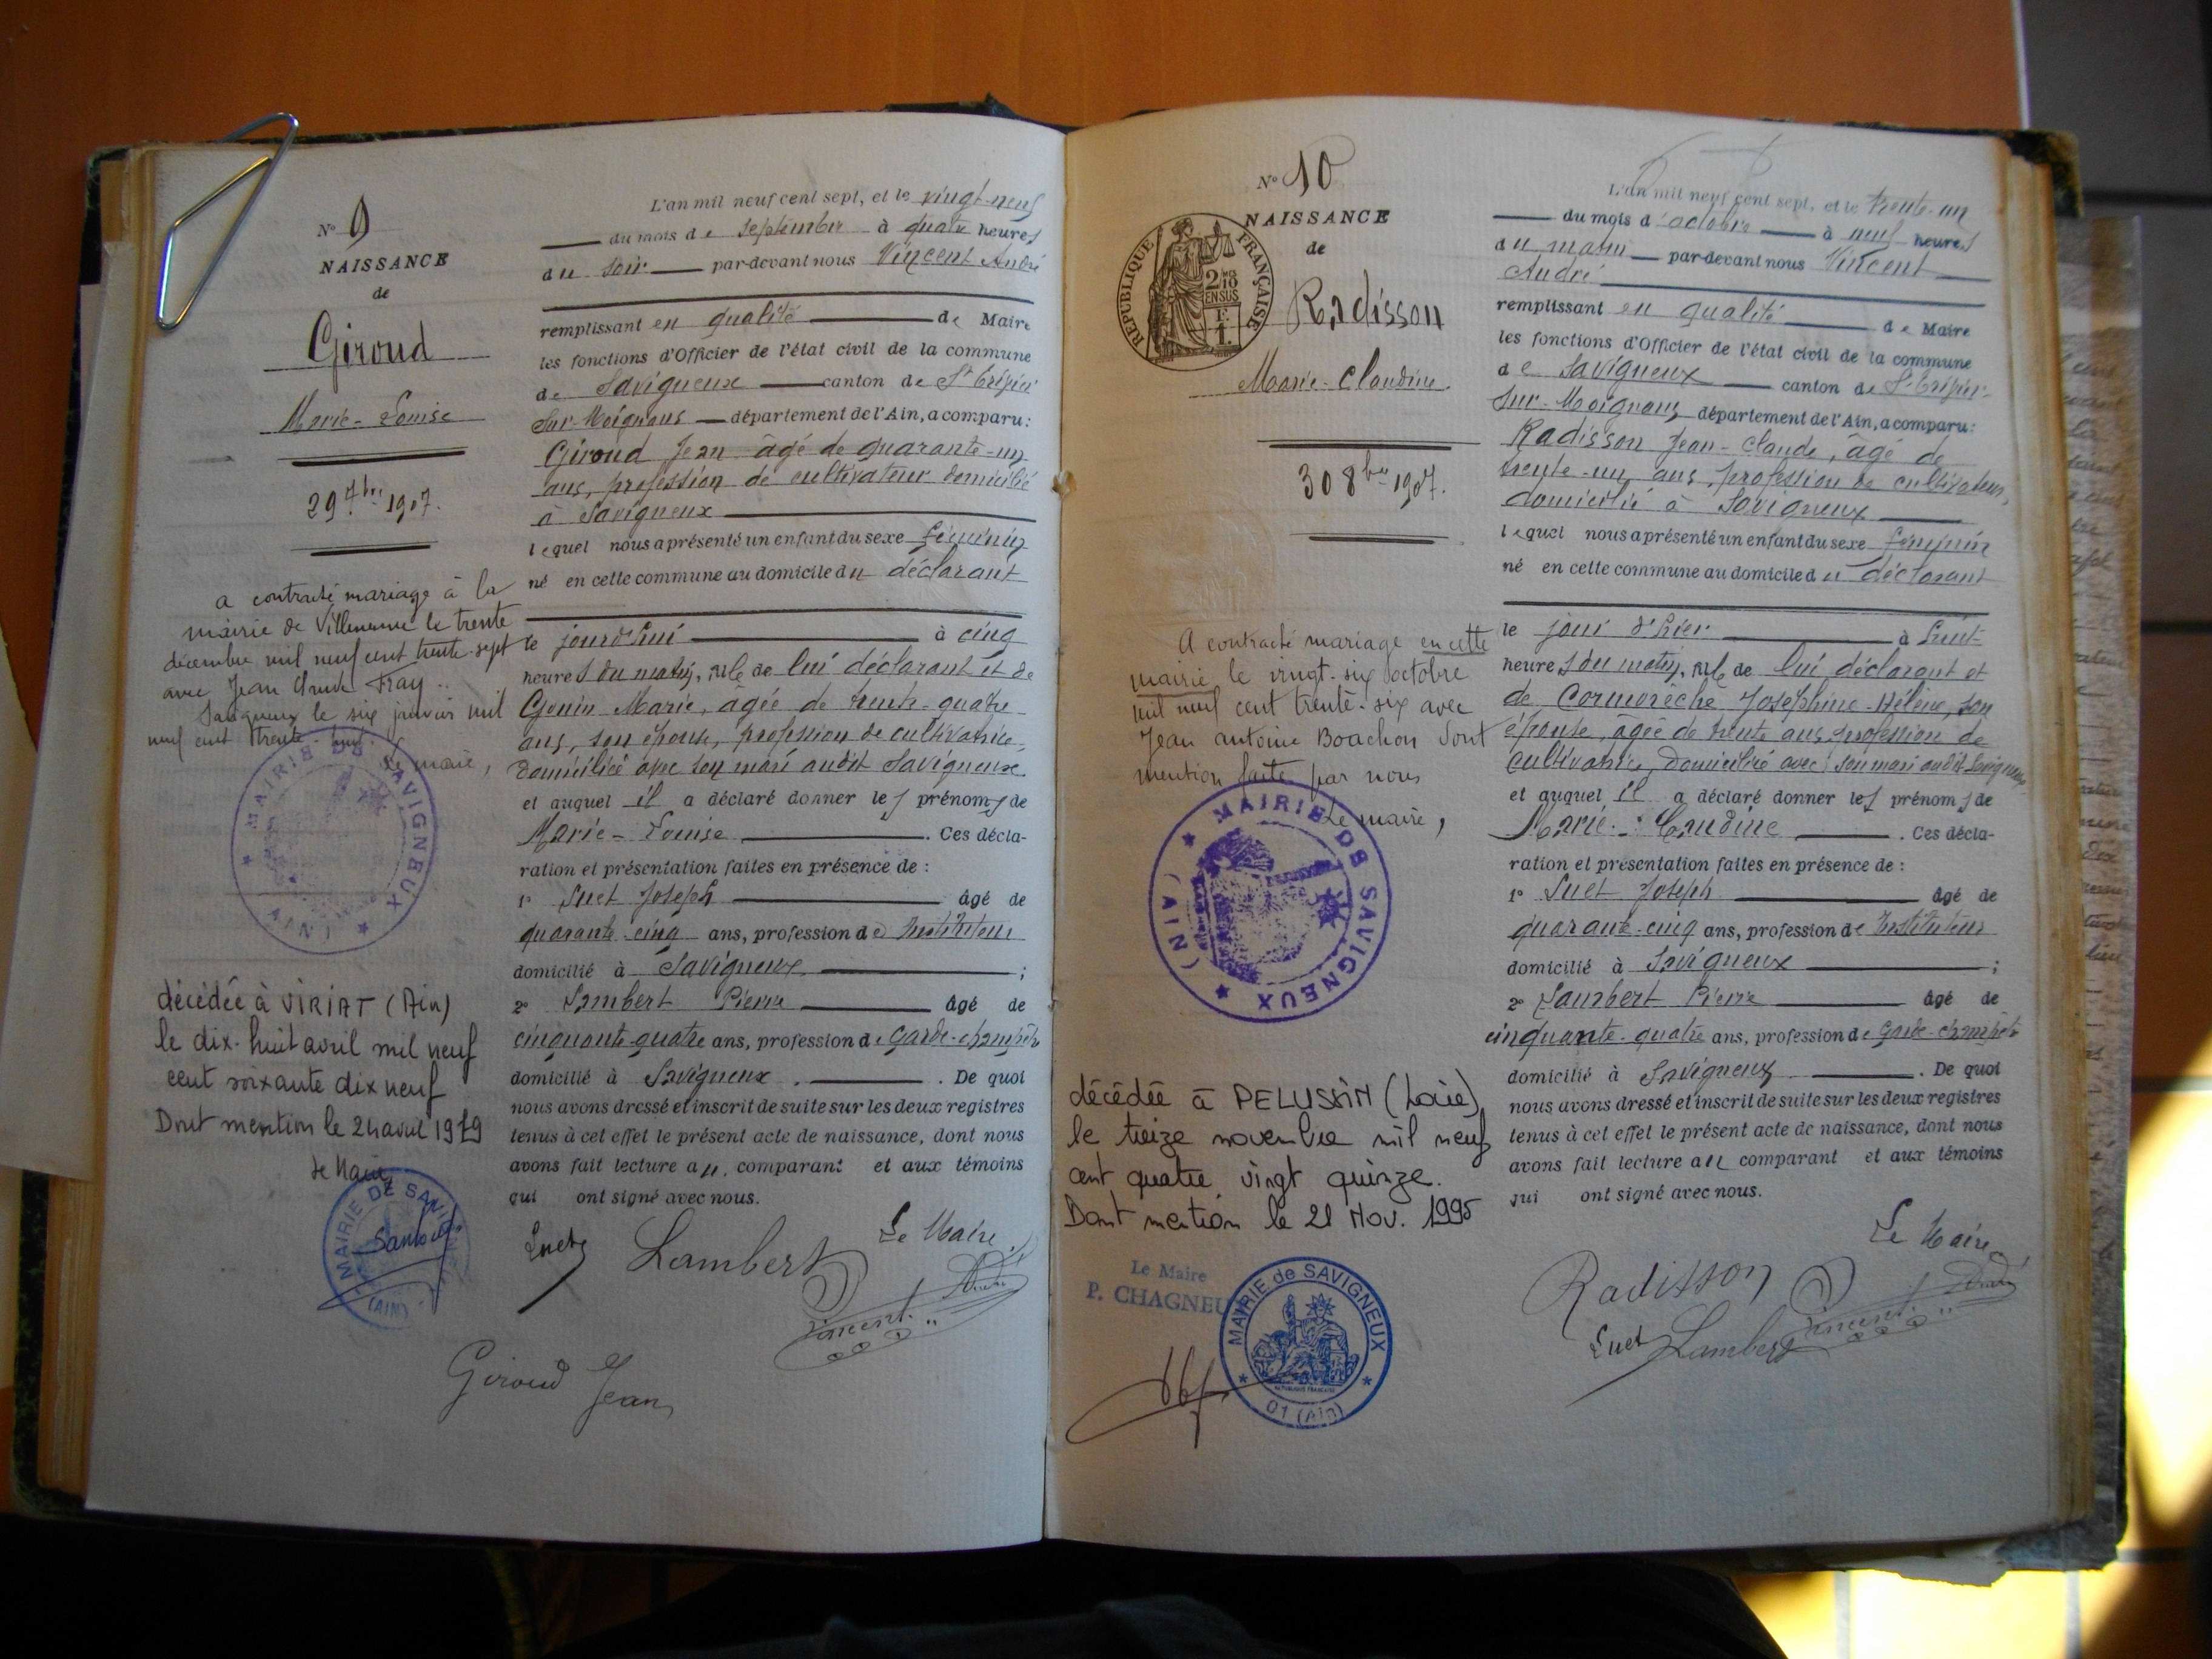 N° 9
NAISSANCE
de
Giroud
Marie-Louise
29 7bre 1907.
a contracté mariage à la
mairie de Villeneuve le trente
décembre mil neuf cent trente-sept
avec Jean Claude Fray.
Savigneux le six janvier mil
neuf cent trente-huit.
Le maire,
MAIRIE DE SAVIGNEUX
(AIN)
décédée à VIRIAT (Ain)
le dix-huit avril mil neuf
cent soixante dix neuf
Dont mention le 24 avril 1979
Le Maire
MAIRIE DE SAVIGNEUX
(AIN)
L'an mil neuf cent sept, et le vingt-neuf
du mois de septembre à quatre heures
du soir par-devant nous Vincent André
remplissant en qualité de Maire
les fonctions d'Officier de l'état civil de la commune
de Savigneux canton de St Trivier
sur-Moignans département de l'Ain, a comparu:
Giroud Jean âgé de quarante-un
ans, profession de cultivateur domicilié
à Savigneux
lequel nous a présenté un enfant du sexe féminin
né en cette commune au domicile du déclarant
le jourd'hui à cinq
heures du matin, née de lui déclarant et de
Genin Marie, âgée de trente-quatre
ans, son épouse, profession de cultivatrice,
domiciliée avec son mari audit Savigneux
et auquel il a déclaré donner les prénoms de
Marie-Louise. Ces décla-
ration et présentation faites en présence de :
1° Suet Joseph âgé de
quarante-cinq ans, profession de Instituteur
domicilié à Savigneux ;
2° Lambert Pierre âgé de
cinquante-quatre ans, profession de garde-champêtre
domicilié à Savigneux. De quoi
nous avons dressé et inscrit de suite sur les deux registres
tenus à cet effet le présent acte de naissance, dont nous
avons fait lecture au comparant et aux témoins
qui ont signé avec nous.
Suet Lambert Le Maire
Vincent André
Giroud Jean
N° 10
NAISSANCE
de
RÉPUBLIQUE FRANÇAISE
2/10 EN SUS
Radisson
Marie-Claudine.
30 8bre 1907.
A contracté mariage en cette
mairie le vingt-six octobre
mil neuf cent trente-six avec
Jean antoine Boachon dont
mention faite par nous
Le maire,
MAIRIE DE SAVIGNEUX
(AIN)
décédée à PELUSSIN (Loire)
le treize novembre mil neuf
cent quatre vingt quinze.
Dont mention le 21 Nov. 1995
Le Maire
P. CHAGNEUX
MAIRIE de SAVIGNEUX
RÉPUBLIQUE FRANÇAISE
01 (Ain)
L'an mil neuf cent sept, et le trente-un
du mois d'octobre à neuf heures
du matin par-devant nous Vincent
André
remplissant en qualité de Maire
les fonctions d'Officier de l'état civil de la commune
de Savigneux canton de St Trivier-
sur-Moignans département de l'Ain, a comparu:
Radisson Jean-Claude, âgé de
trente-un ans, profession de cultivateur,
domicilié à Savigneux
lequel nous a présenté un enfant du sexe féminin
né en cette commune au domicile du déclarant
le jour d'hier à huit
heures du matin, née de lui déclarant et
de Cormorèche Joséphine-Hélène, son
épouse, âgée de trente ans, profession de
cultivatrice, domiciliée avec son mari audit Savigneux
et auquel il a déclaré donner les prénoms de
Marie-Claudine. Ces décla-
ration et présentation faites en présence de :
1° Suet Joseph âgé de
quarante-cinq ans, profession de Instituteur
domicilié à Savigneux ;
2° Lambert Pierre âgé de
cinquante-quatre ans, profession de garde-champêtre
domicilié à Savigneux. De quoi
nous avons dressé et inscrit de suite sur les deux registres
tenus à cet effet le présent acte de naissance, dont nous
avons fait lecture au comparant et aux témoins
qui ont signé avec nous.
Le Maire
Radisson
Vincent André
Suet Lambert